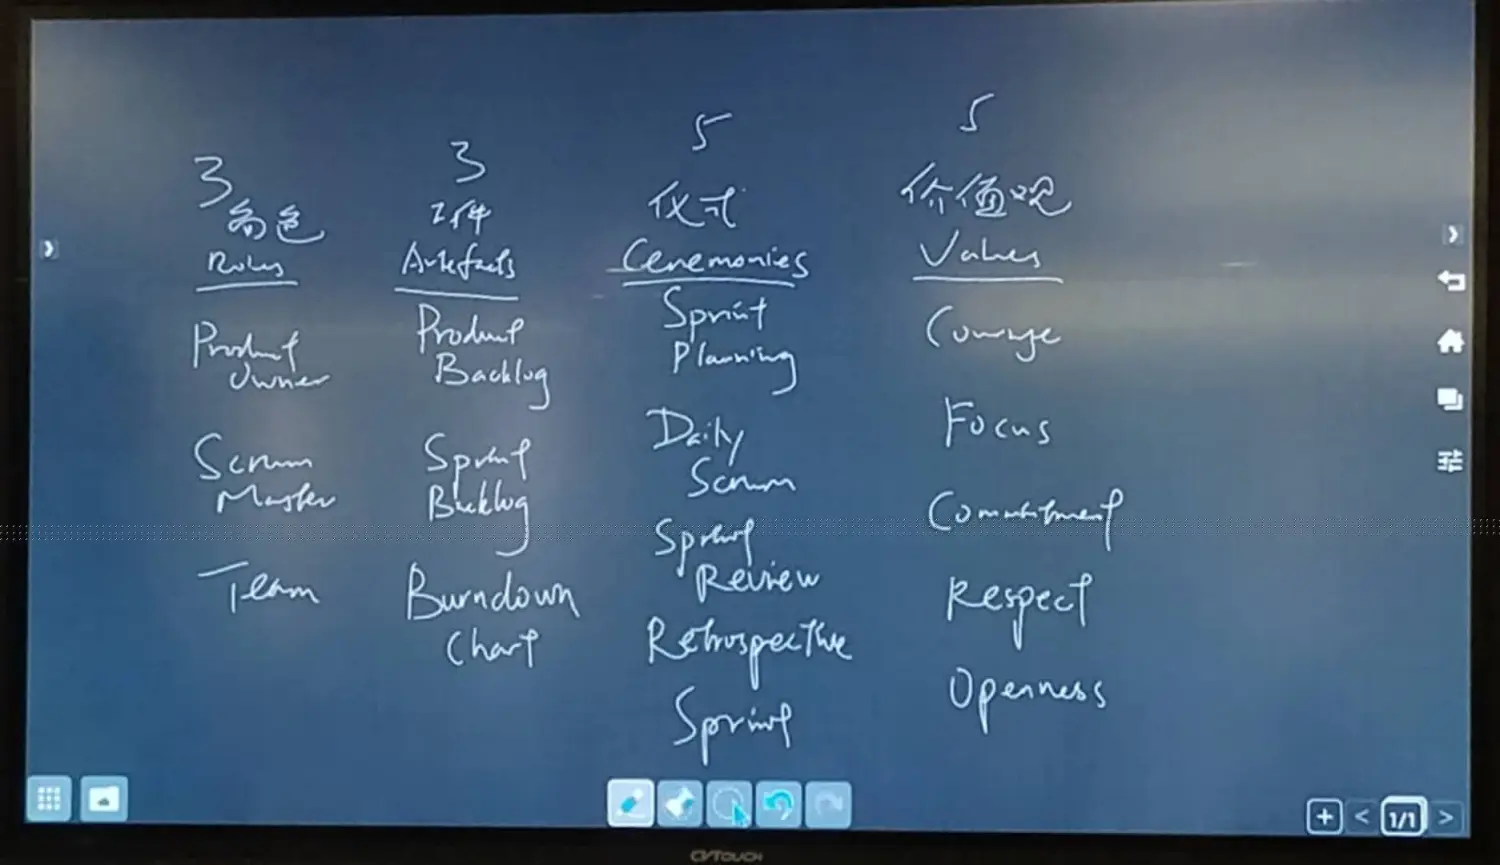 3
角色
Roles
Product
Owner
Scrum
Master
Team
3
工件
Artefacts
Product
Backlog
Sprint
Backlog
Burndown
Chart
5
仪式
Ceremonies
Sprint
Planning
Daily
Scrum
Sprint
Review
Retrospective
Sprint
5
价值观
Values
Courage
Focus
Commitment
Respect
Openness
1/1
CVTOUCH